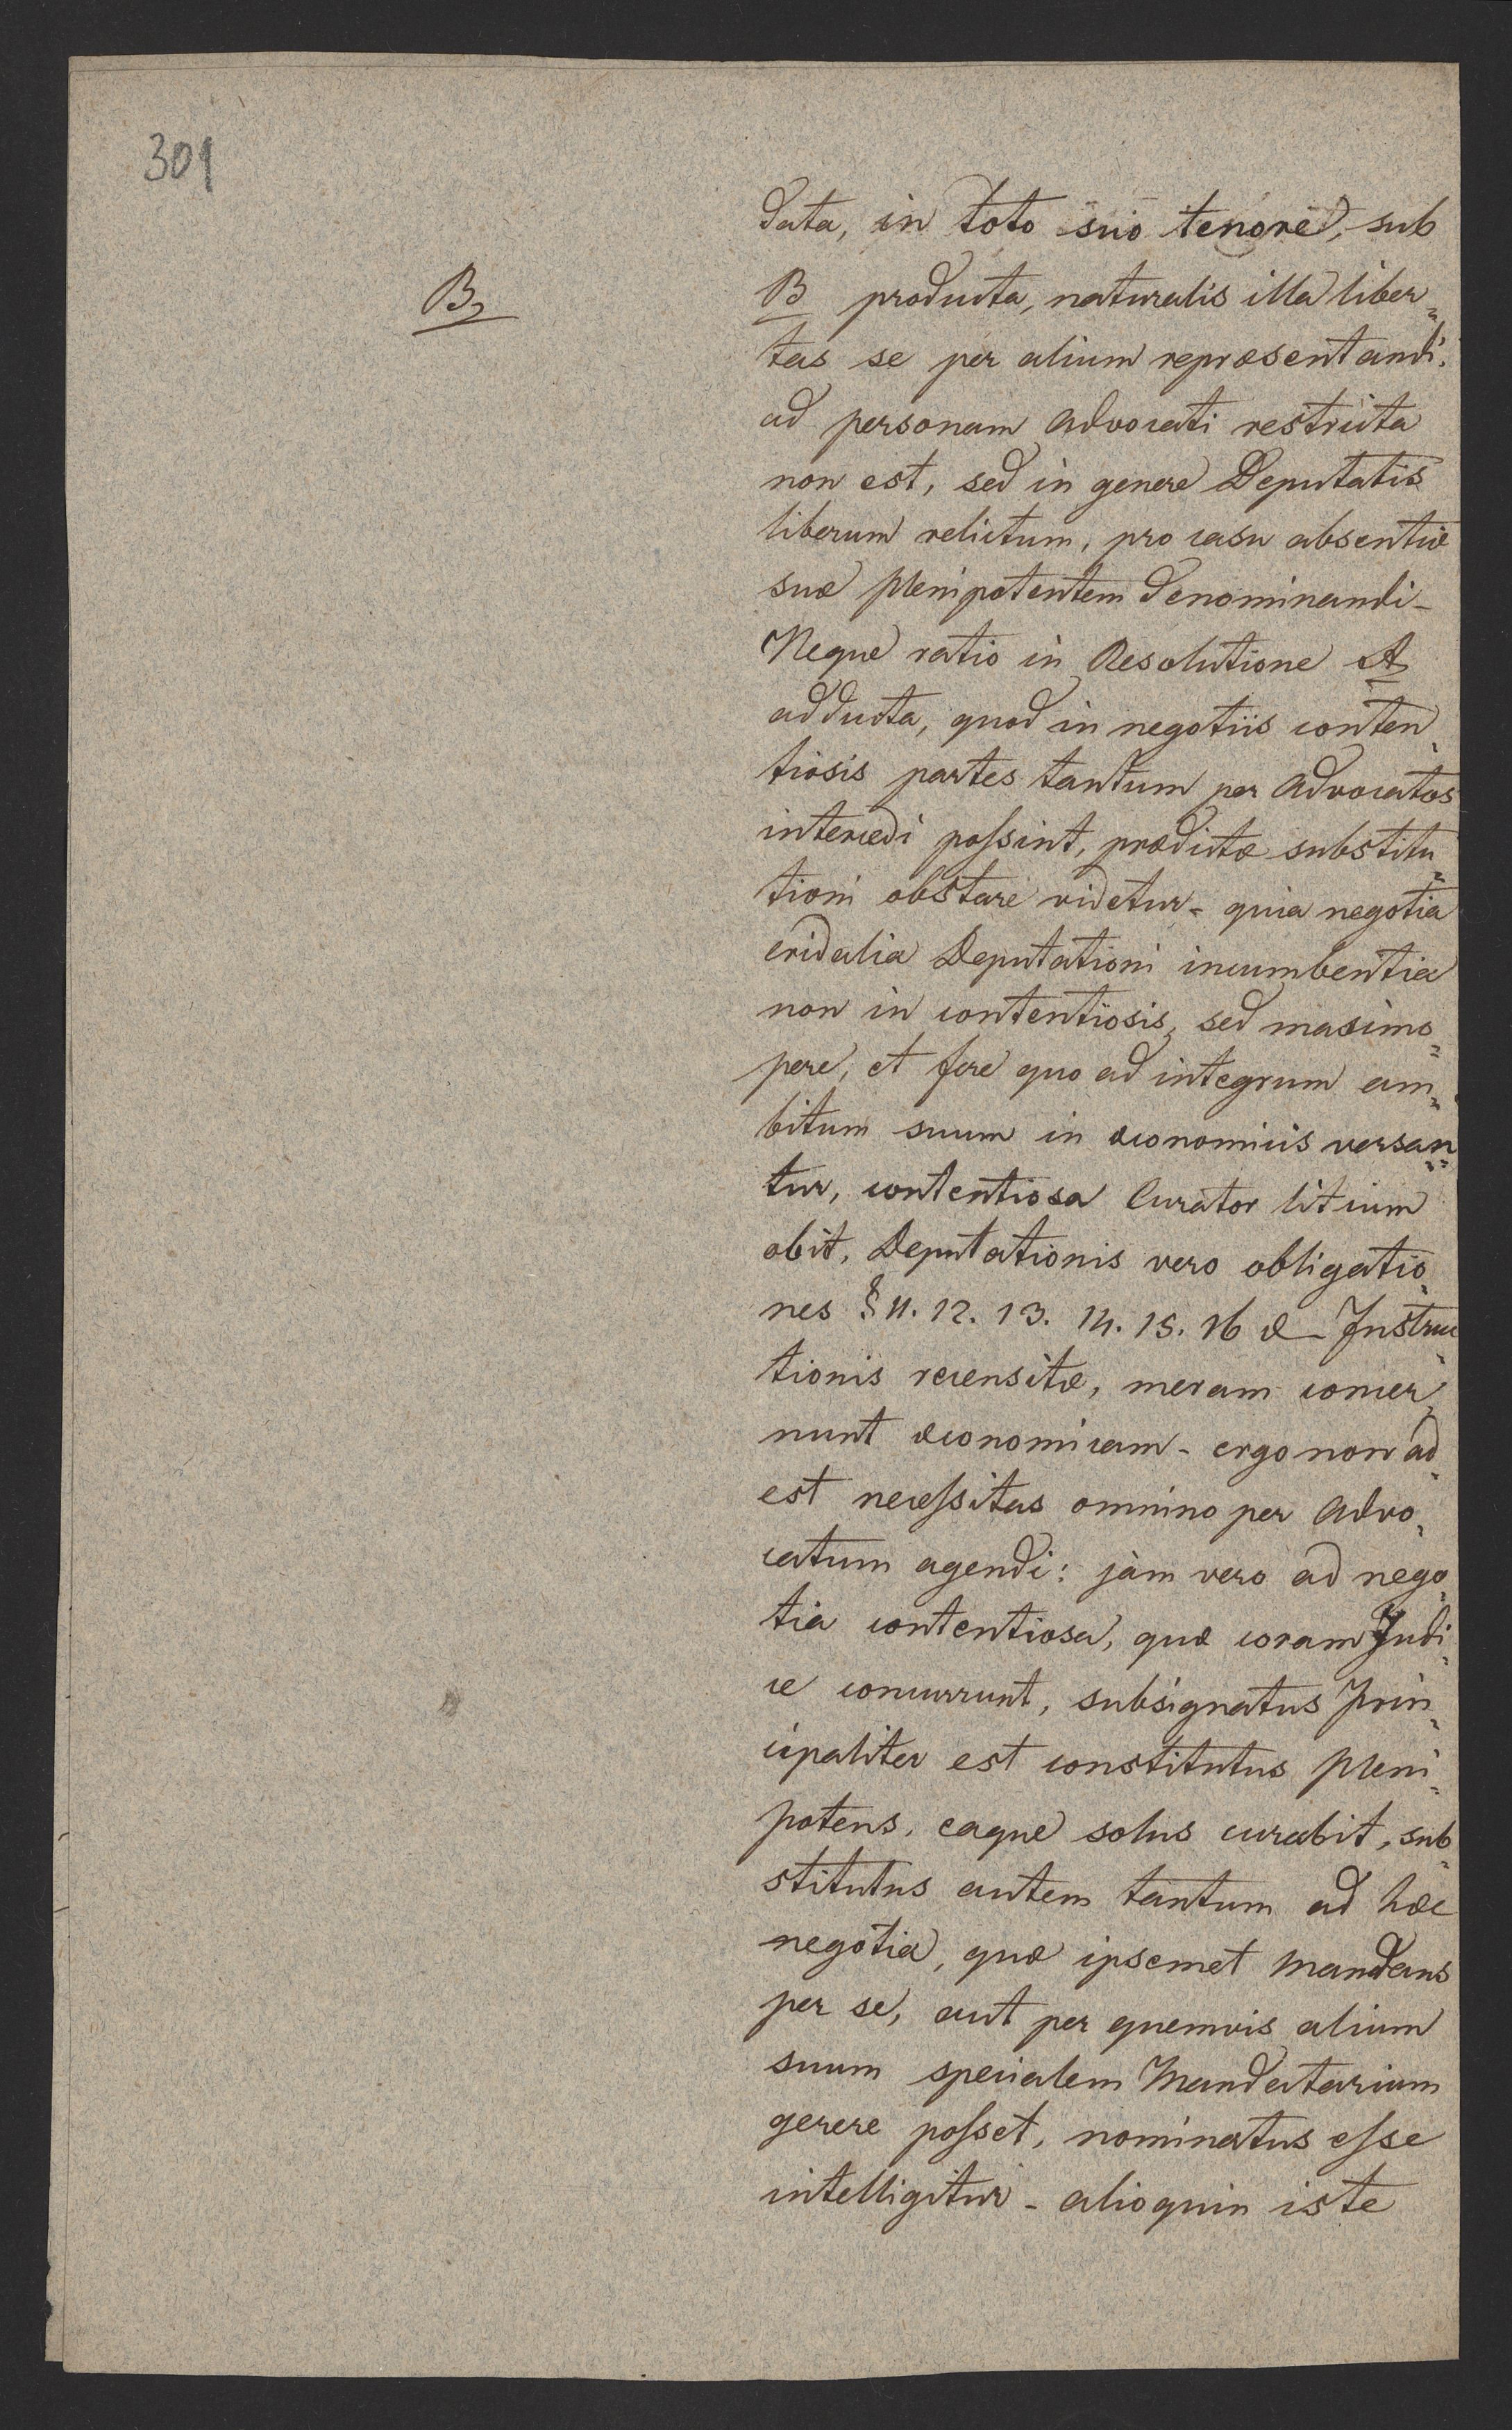 301
data, in toto suo tenore, sub
B
B producta, naturalis illa liber„
tas se per alium repræsentandi.
ad personam Advocati restricta
non est, sed in genere Deputatis
liberum relictum, pro casu absentiæ
suæ plenipotentem denominandi-
Neque ratio in Resolutione A
adducta, quod in negotiis conten„
tiosis partes tantum per Advocatos
intercedi poſsint, prædictæ substitu„
tioni obstare videtur- quia negotia
cridalia Deputationi incumbentia
non in contentiosis, sed maximo„
pere, et fere quo ad integrum am„
bitum suum in œconomicis versan„
tur, contentiosa Curator litium
obit, Deputationis vero obligatio„
nes § 11. 12. 13. 14. 15. 16 & Instruc„
tionis recensitæ, meram concer„
nunt œconomicam- ergo non ad„
est neceſsitas omnino per Advo„
catum agendi: jam vero ad nego„
tia contentiosa, quæ coram Judi„
ce concurrunt, subsignatus prin„
cipaliter est constitutus pleni„
potens, eaque solus curabit, sub„
stitutus autem tantum ad hæc
negotia, quæ ipsemet Mandans
per se, aut per quemvis alium
suum specialem Mandatarium
gerere poſset, nominatus eſse
intelligitur- alioquin iste